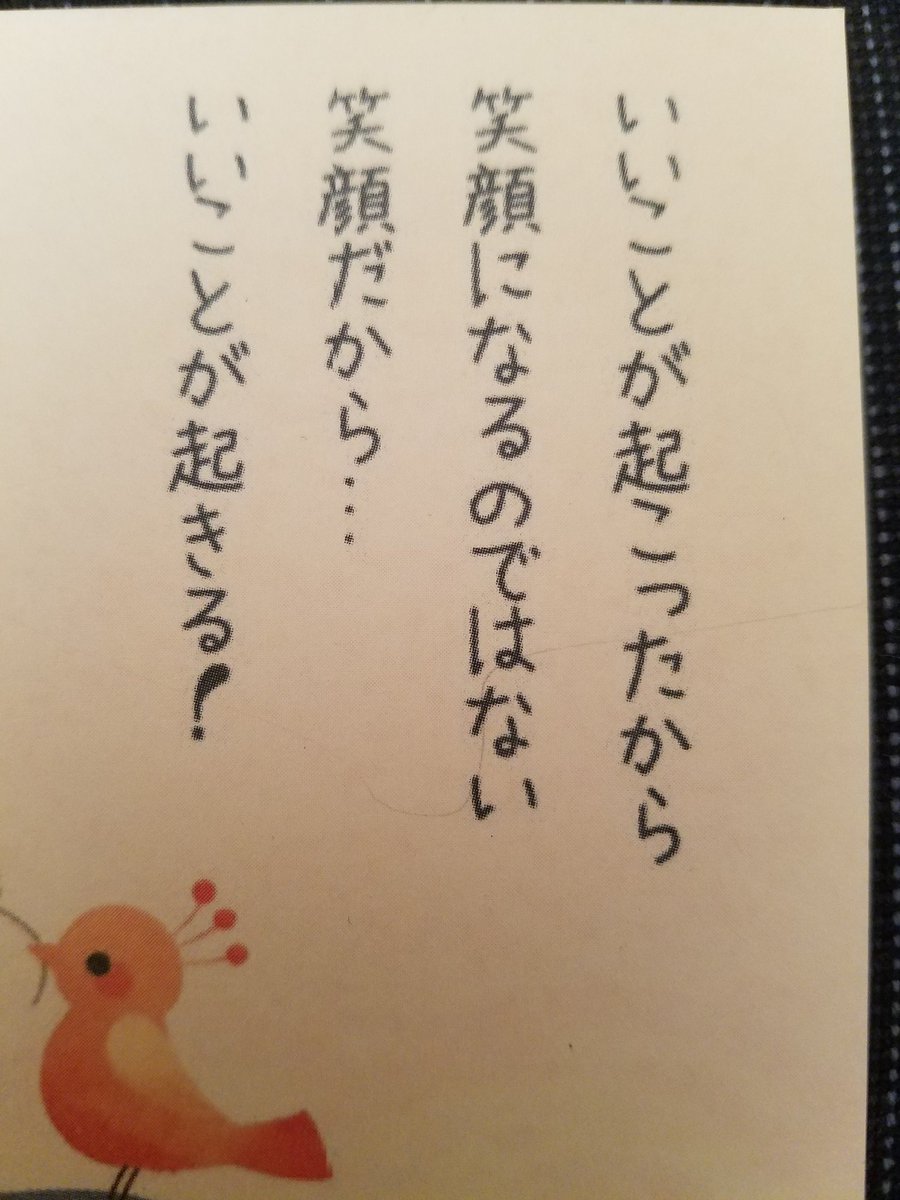 いいことが起こったから
笑顔になるのではない
笑顔だから…
いいことが起きる!